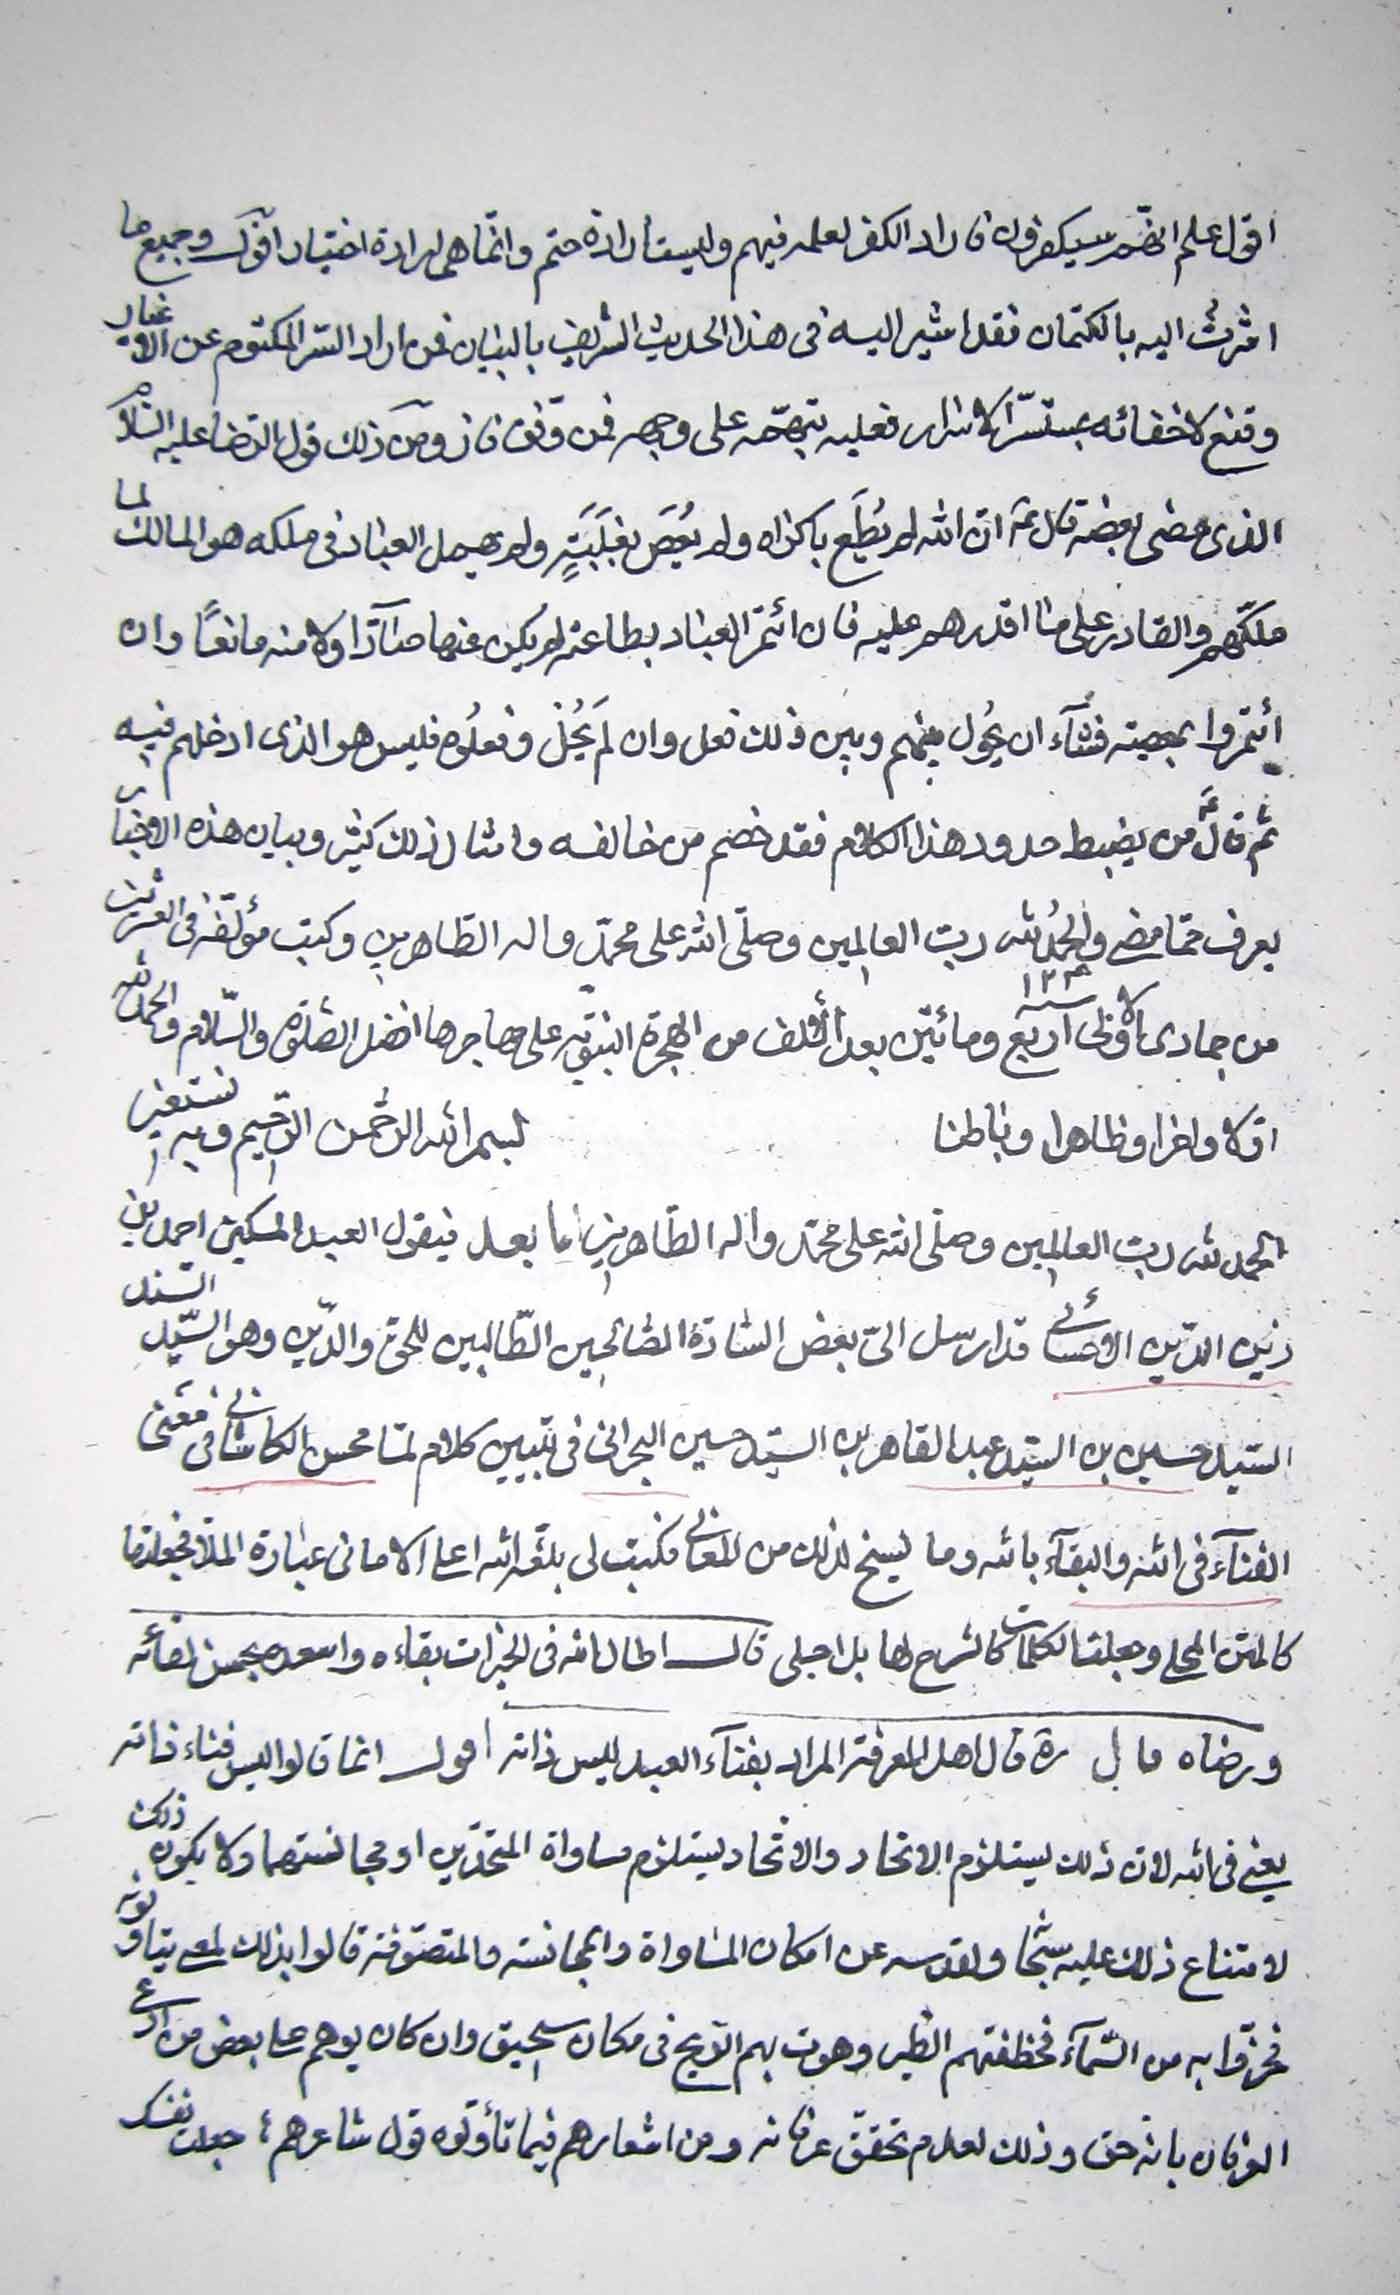 اقول علم انهم سيكفرون فاراد الكفر لعلمه فيهم وليست ارادة حتم وانما هي ارادة اختيار اقول وجميع ما
اشرت اليه بالكتمان فقد اشير اليه في هذا الحديث الشريف بالبيان فمن اراد السر المكتوم عن الاغيار
وقنع لاخفائه بمستسر الاسرار فعليه بتفهمه على وجهه فمن وفق فاز ومن ذلك قول الرضا عليه السلام
الذي مضى بعضه قال ع ان الله لم يُطَع باكراه ولم يُعصَ بغَلَبَةٍ ولم يهمل العباد في ملكه هو المالك لما
ملّكهم والقادر على ما اقدرهم عليه فان ائتمر العباد بطاعته لم يكن عنها صآدّا ولا منه مانعًا وان
ائتمروا بمعصيته فشآء ان يحُول بينهم وبين ذلك فعل وان لم يَحُل وفعلُوه فليس هو الذي ادخلهم فيه
ثم قال ع من يضبط حدود هذا الكلام فقد خصم من خالفه وامثال ذلك كثير وبيان هذه الاخبار
يعرف مما مضى والحمد لله رب العالمين وصلى الله على محمد واله الطاهرين وكتب مؤلفه في العشرين
من جمادى الاولى سنة ١٢٠٤ اربع ومائتين بعد الألف من الهجرة النبوية على مهاجرها افضل الصلوة والسلام والحمد لله
اولا واخرا وظاهرا وباطنا بسم الله الرحمن الرحيم وبه نستعين
الحمد لله رب العالمين وصلى الله على محمد واله الطاهرين اما بعد فيقول العبد المسكين احمد بن
زين الدين الاحسائي قد ارسل اليّ بعض السادة الصالحين الطالبين للحق والدين وهو السيد السند
السيد حسين بن السيد عبد القاهر بن السيد حسين البحراني في تبيين كلام لملا محسن الكاشاني في معنى
الفنآء في الله والبقآء بالله وما يسنح لذلك من المعاني فكتب لي بلغه الله اعلى الاماني عبارة الملا فجعلتها
كالمتن المحلى وجعلت الكلمات كالشرح لها بل اجلى قال اطال الله في الخيرات بقاءه واسعده بحسن لقائه
ورضاه قال ره قال اهل المعرفة المراد بفنآء العبد ليس ذاته اقول انما قالوا ليس فناء ذاته
يعني في الله لان ذلك يستلزم الاتحاد والاتحاد يستلزم مساواة المتحدين او مجانستهما ولا يكون ذلك
لامتناع ذلك عليه سبحانه ولقدسه عن امكان المساواة والمجانسة والمتصوفة قالوا بذلك لمعنى يتاولونه
فخرّوا به من السمآء فخطفتهم الطير وهوت بهم الريح في مكان سحيق وان كان يوهم على بعض من ادعى
العرفان بانه حق وذلك لعدم تحقق عرفانه ومن اشعارهم فيما تأولوه قول شاعرهم ؛ جعلت نفسك